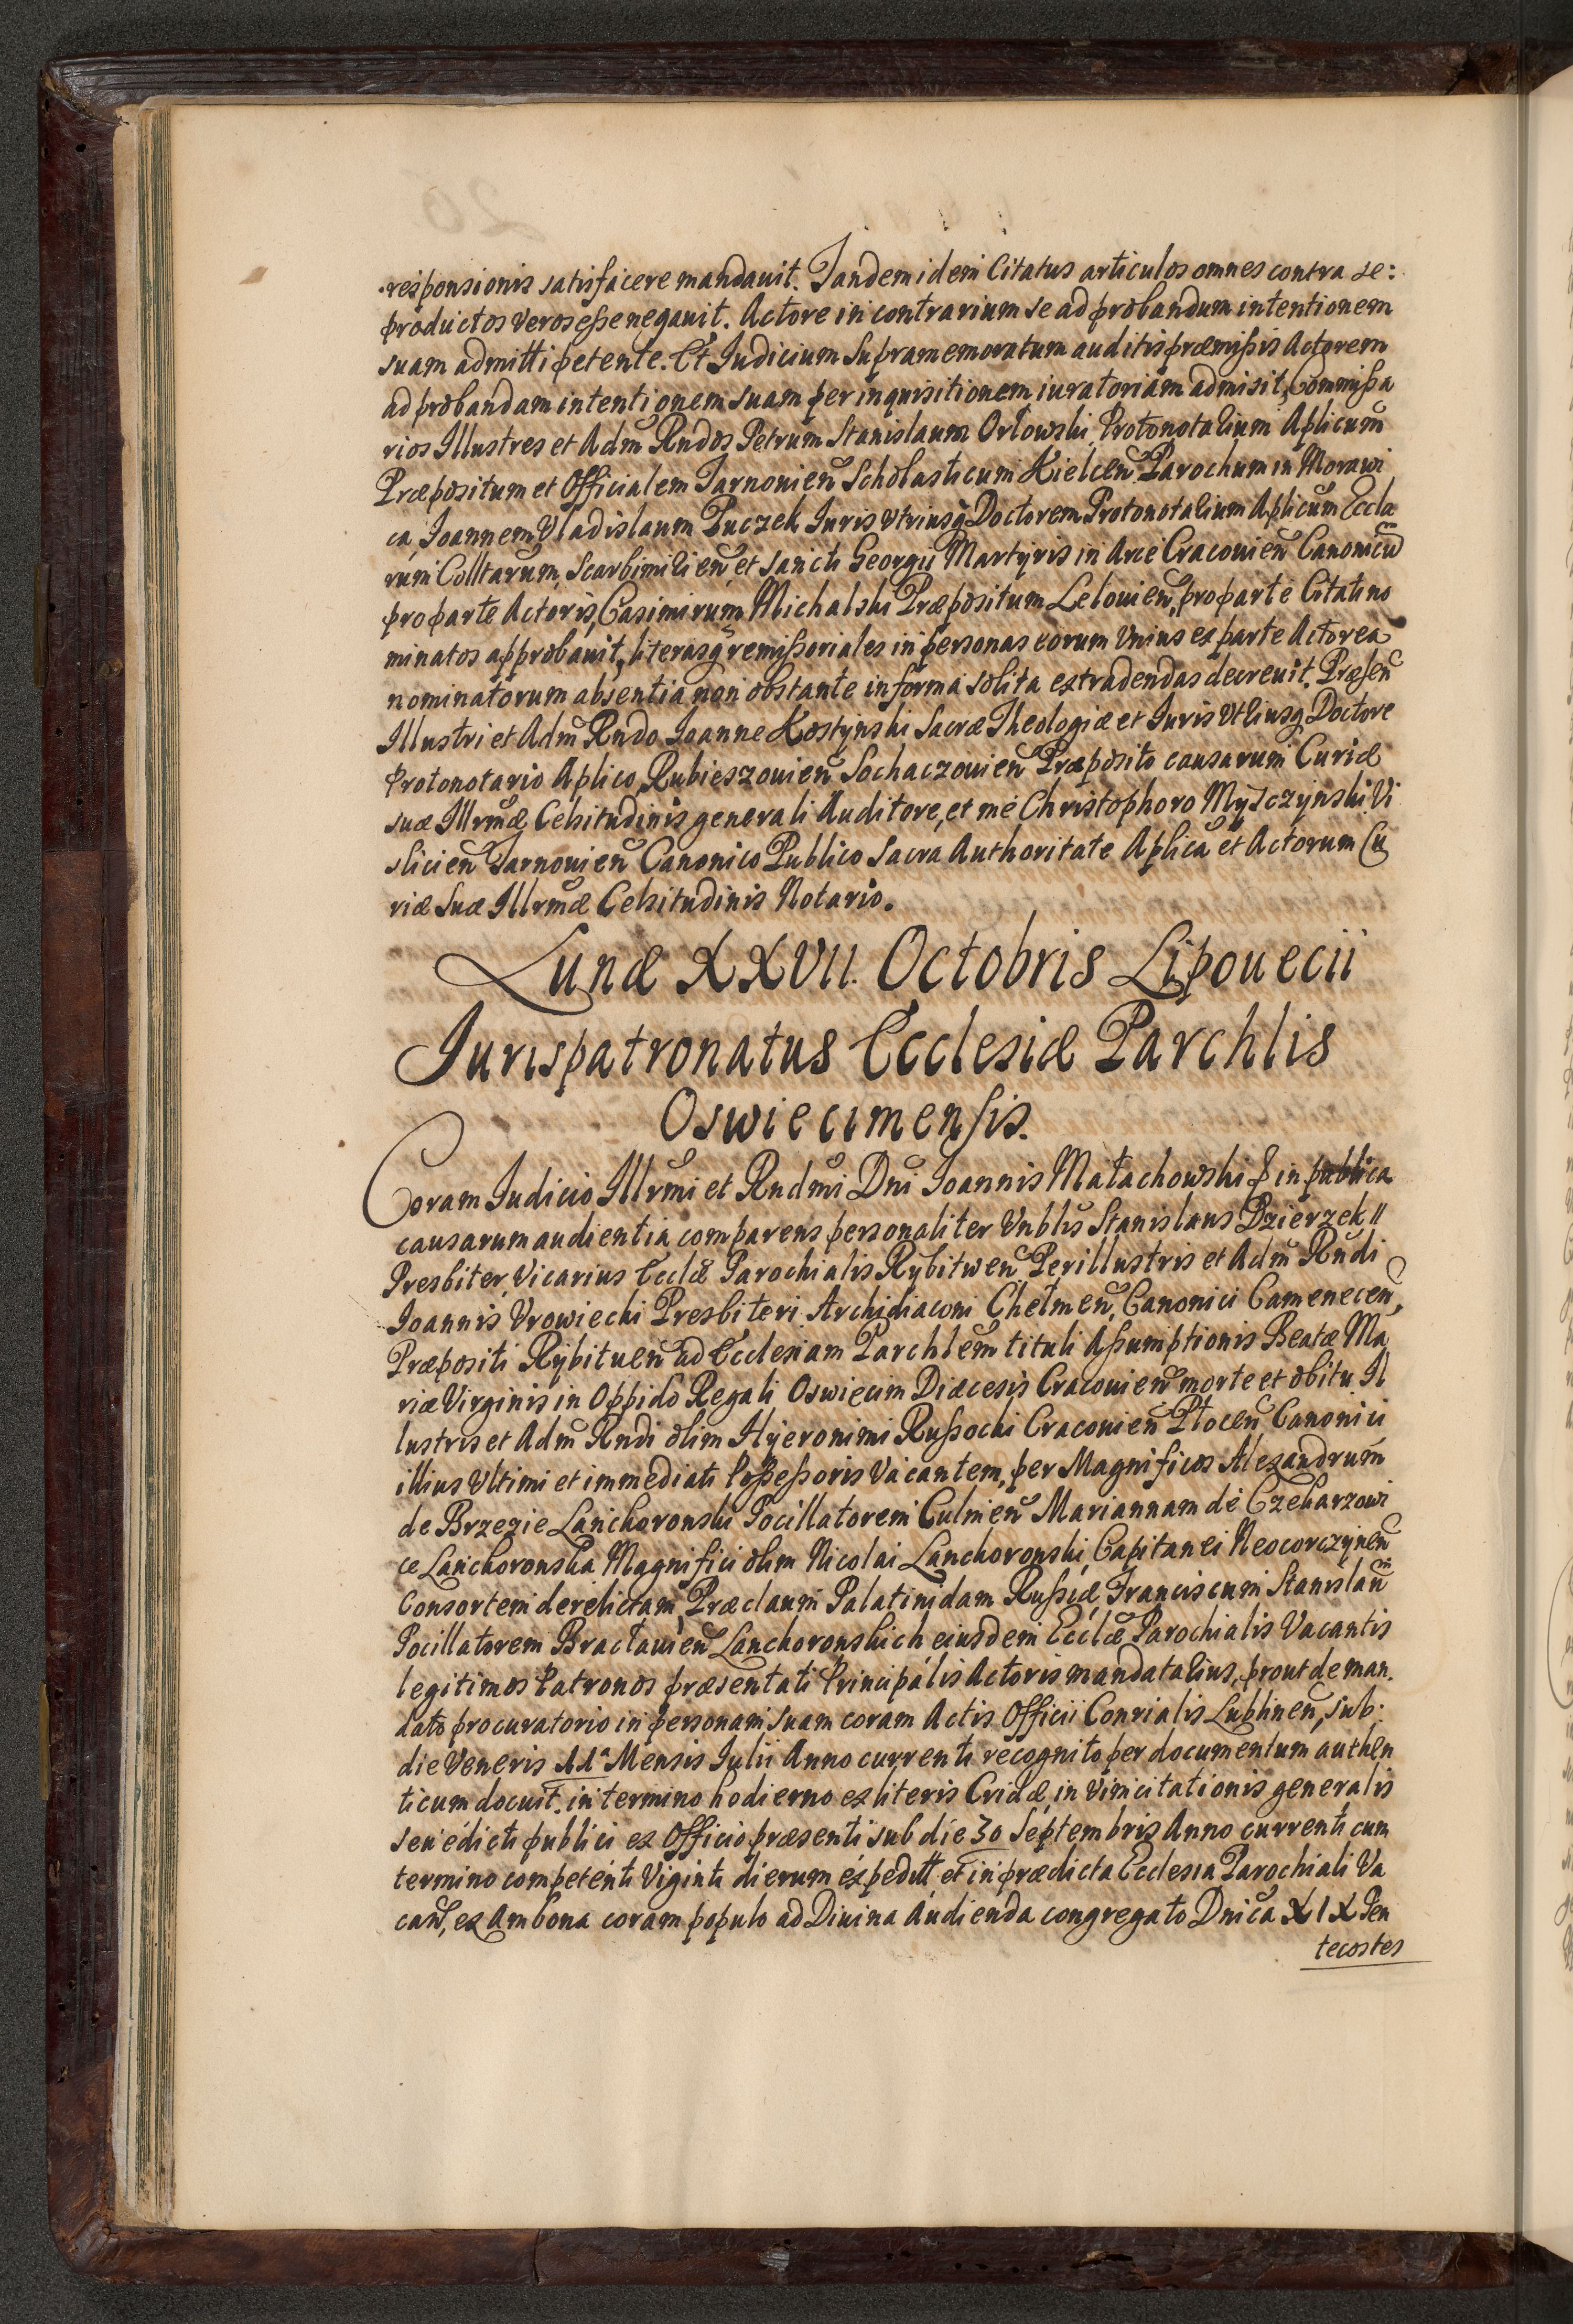 responsionis satisfacere mandauit. Tandem idem Citatus articulos omnes contra se:
productos veros eße negauit. Actore in contrarium se ad probandum intentionem
suam admitti petente. Et Iudicium Supramemoratum auditis præmißis Actorem
ad probandam intentionem suam per inquisitionem iuratoriam admisit, Commißa
rios Illustres et Adm̃ Rñdos Petrum Stanislaum Orłowski, Protonotarium Aplicum̃
Præpositum et Officialem Tarnouien̄ Scholasticum Kielcen̄ Parochum in Morawi
ca, Ioannem Vladislaum Puczek Iuris vtriusq Doctorem Protonotarium Aplicum Eccla
rum Colltarum, Scarbimirien̄ et Sancti Georgii Martyris in Arce Cracouien̄ Canonicũ
pro parte Actoris, Casimirum Michalski Præpositum Lelouien̄, pro parte Citati no
minatos approbauit, literasq remißoriales in personas eorum Vnius ex parte Actorea
nominatorum absentia non obstante in forma solita extradendas decreuit. Præsen̄
Illustri et Adm̃ Rñdo Ioanne Kostynski Sacræ Theologiæ et Iuris Vtriusq Doctore
Protonotario Aplico, Rubieszouien̄ Sochaczouien̄ Præposito causarum Curiæ
suæ Illrmæ Celsitudinis generali Auditore, et me Christophoro Mysczynski Vi
slicien̄ Tarnouien̄ Canonico Publico Sacra Authoritate Aplica et Actorum Cu
riæ Suæ Illrmæ Celsitudinis Notario.
Lunæ XXVII. Octobris Lipouecii
Iurispatronatus Ecclesiæ Parchlis
Oswiecimensis.
Coram Iudicio Illrmi et Rndmi Dñi Ioannis Małachowski & in publica
causarum audientia comparens personaliter Vnblis Stanislaus Dzierzek //
Presbiter, Vicarius Ecclæ Parochialis Rybitwen̄ Perillustris et Adm̃ Rñdi
Ioannis Vrowiecki Presbiteri Archidiaconi Chełmen̄, Canonici Camenecen̄,
Præpositi Rybituen̄ ad Ecclesiam Parchlem tituli Aßumptionis Beatæ Ma
riæ Virginis in Oppido Regali Oswięcim Diæcesis Cracouien̄ morte et obitu Il
lustris et Adm̃ Rñdi olim Hyeronimi Rußocki Cracouien̄ Płocen̄ Canonici
illius Vltimi et immediati Poßeßoris Vacantem, per Magnificos Alexandrum
de Brzezie Lanckoronski Pocillatorem Culmien̄ Mariannam de Czekarzowi
ce Lanckoronska Magnifici olim Nicolai Lanckoronski, Capitanei Neocorczynen̄
Consortem derelictam, Præclaum Palatinidam Rußiæ, Franciscum Stanislau᷉
Pocillatorem Bracłauien̄ Lanckoronskich eiusdem Ecclæ Parochialis Vacantis
legitimos Patronos præsentati Principalis Actoris mandatarius, prout de man.
dato procuratorio in personam suam coram Actis Officii Conrialis Lublinen̄, sub:
die Veneris 11ª Mensis Iulii Anno currenti recognito per documentum authen
ticum docuit. in termino hodierno ex literis Cridæ, in vim citationis generalis
seu edicti publici ex Officio præsenti sub die 30 Septembris Anno currenti cum
termino competenti Viginti dierum expeditt et in prædicta Ecclesia Parochiali Va
can̄, ex Ambona coram populo ad Diuina Audienda congregato Dnica XIX Pen
tecostes